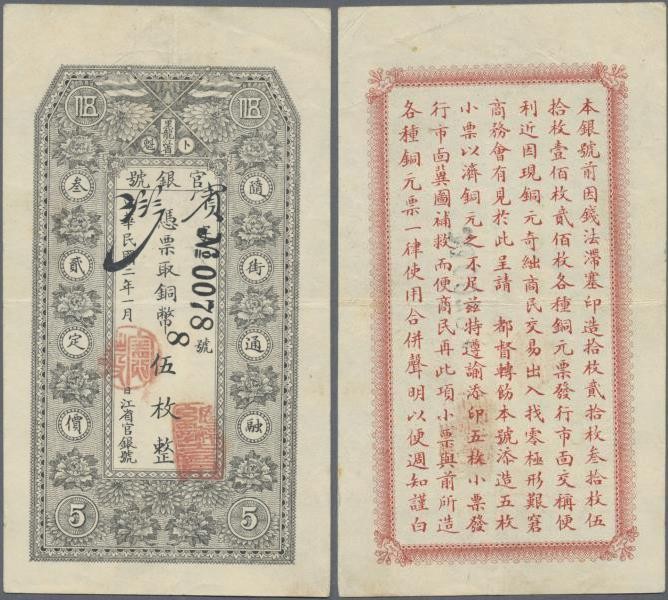 伍 伍
黑龍江省
官銀號
憑票取銅幣伍枚整
№00788號
華民國二年一月 日江省官銀號
隨街通融
叁貳定價
5 5
本銀號前因錢法滯塞印造拾枚貳拾枚叁拾枚伍
拾枚壹佰枚貳佰枚各種銅元票發行市面交稱便
利近因現銅元奇絀商民交易出入找零極形艱窘
商務會有見於此呈請 都督轉飭本號添造五枚
小票以濟銅元之不足茲特遵諭添印五枚小票發
行市面冀圖補救而便商民再此項小票與前所造
各種銅元票一律使用合併聲明以便週知謹白